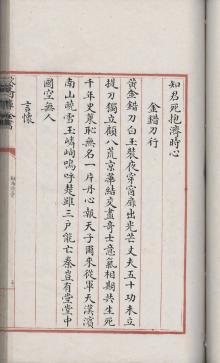 知君死抱濟時心
金錯刀行
黃金錯刀白玉裝夜穿窗扉出光芒丈夫五十功未立
提刀獨立顧八荒京華結交盡奇士意氣相期共生死
千年史策恥無名一片丹心報天子爾來從軍天漢濱
南山曉雪玉嶙峋嗚呼楚雖三戶能亡秦豈有堂堂中
國空無人
言懷